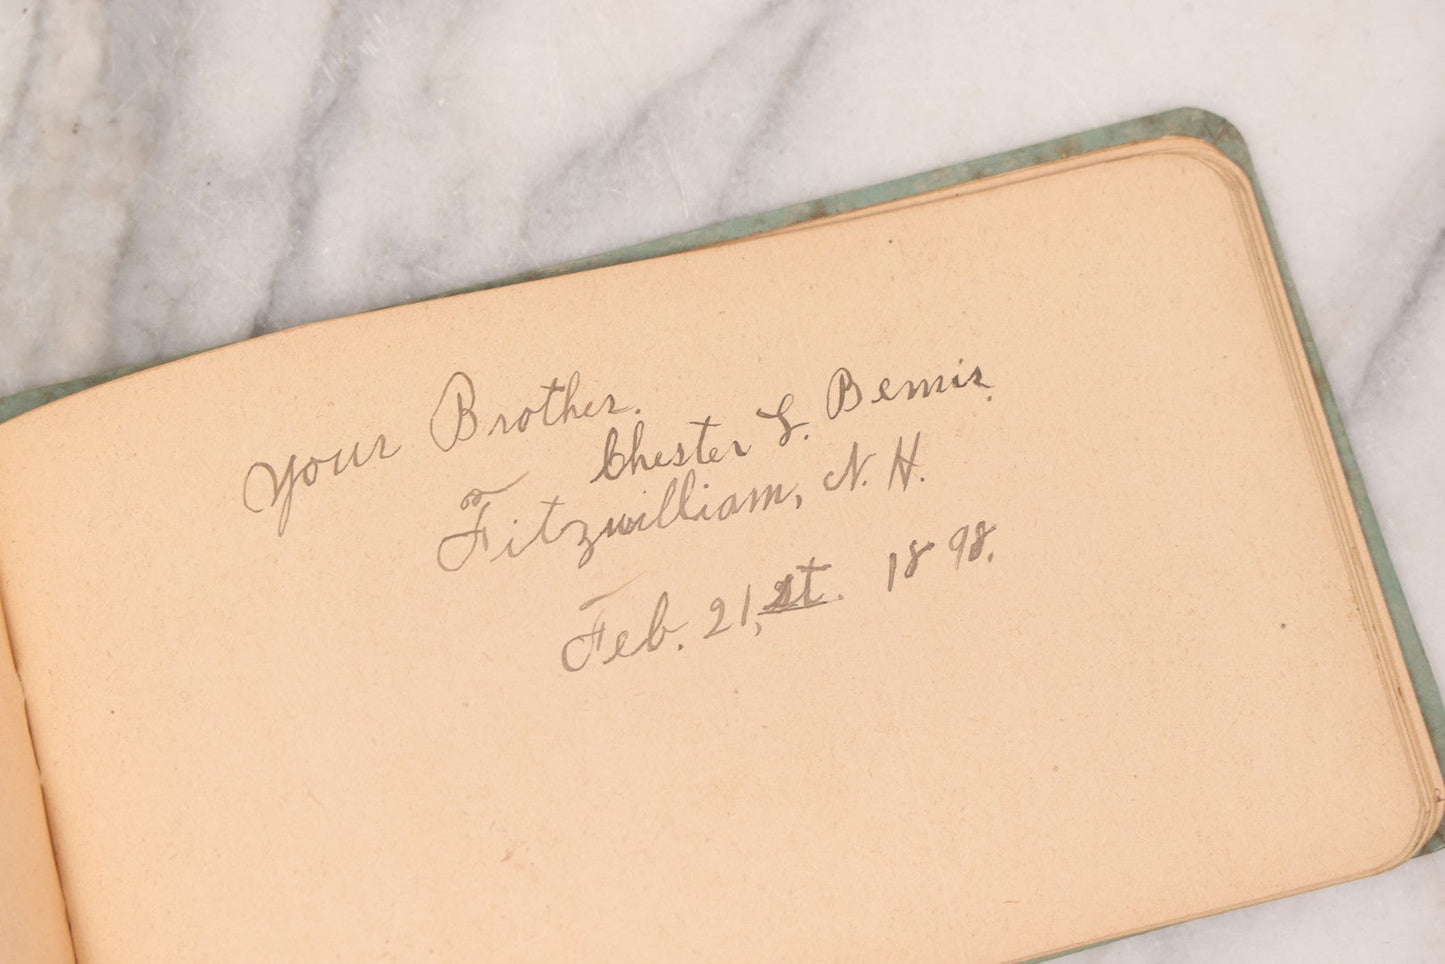 Your Brother.
Chester L. Bemis.
Fitzwilliam, N. H.
Feb. 21, st. 1898.